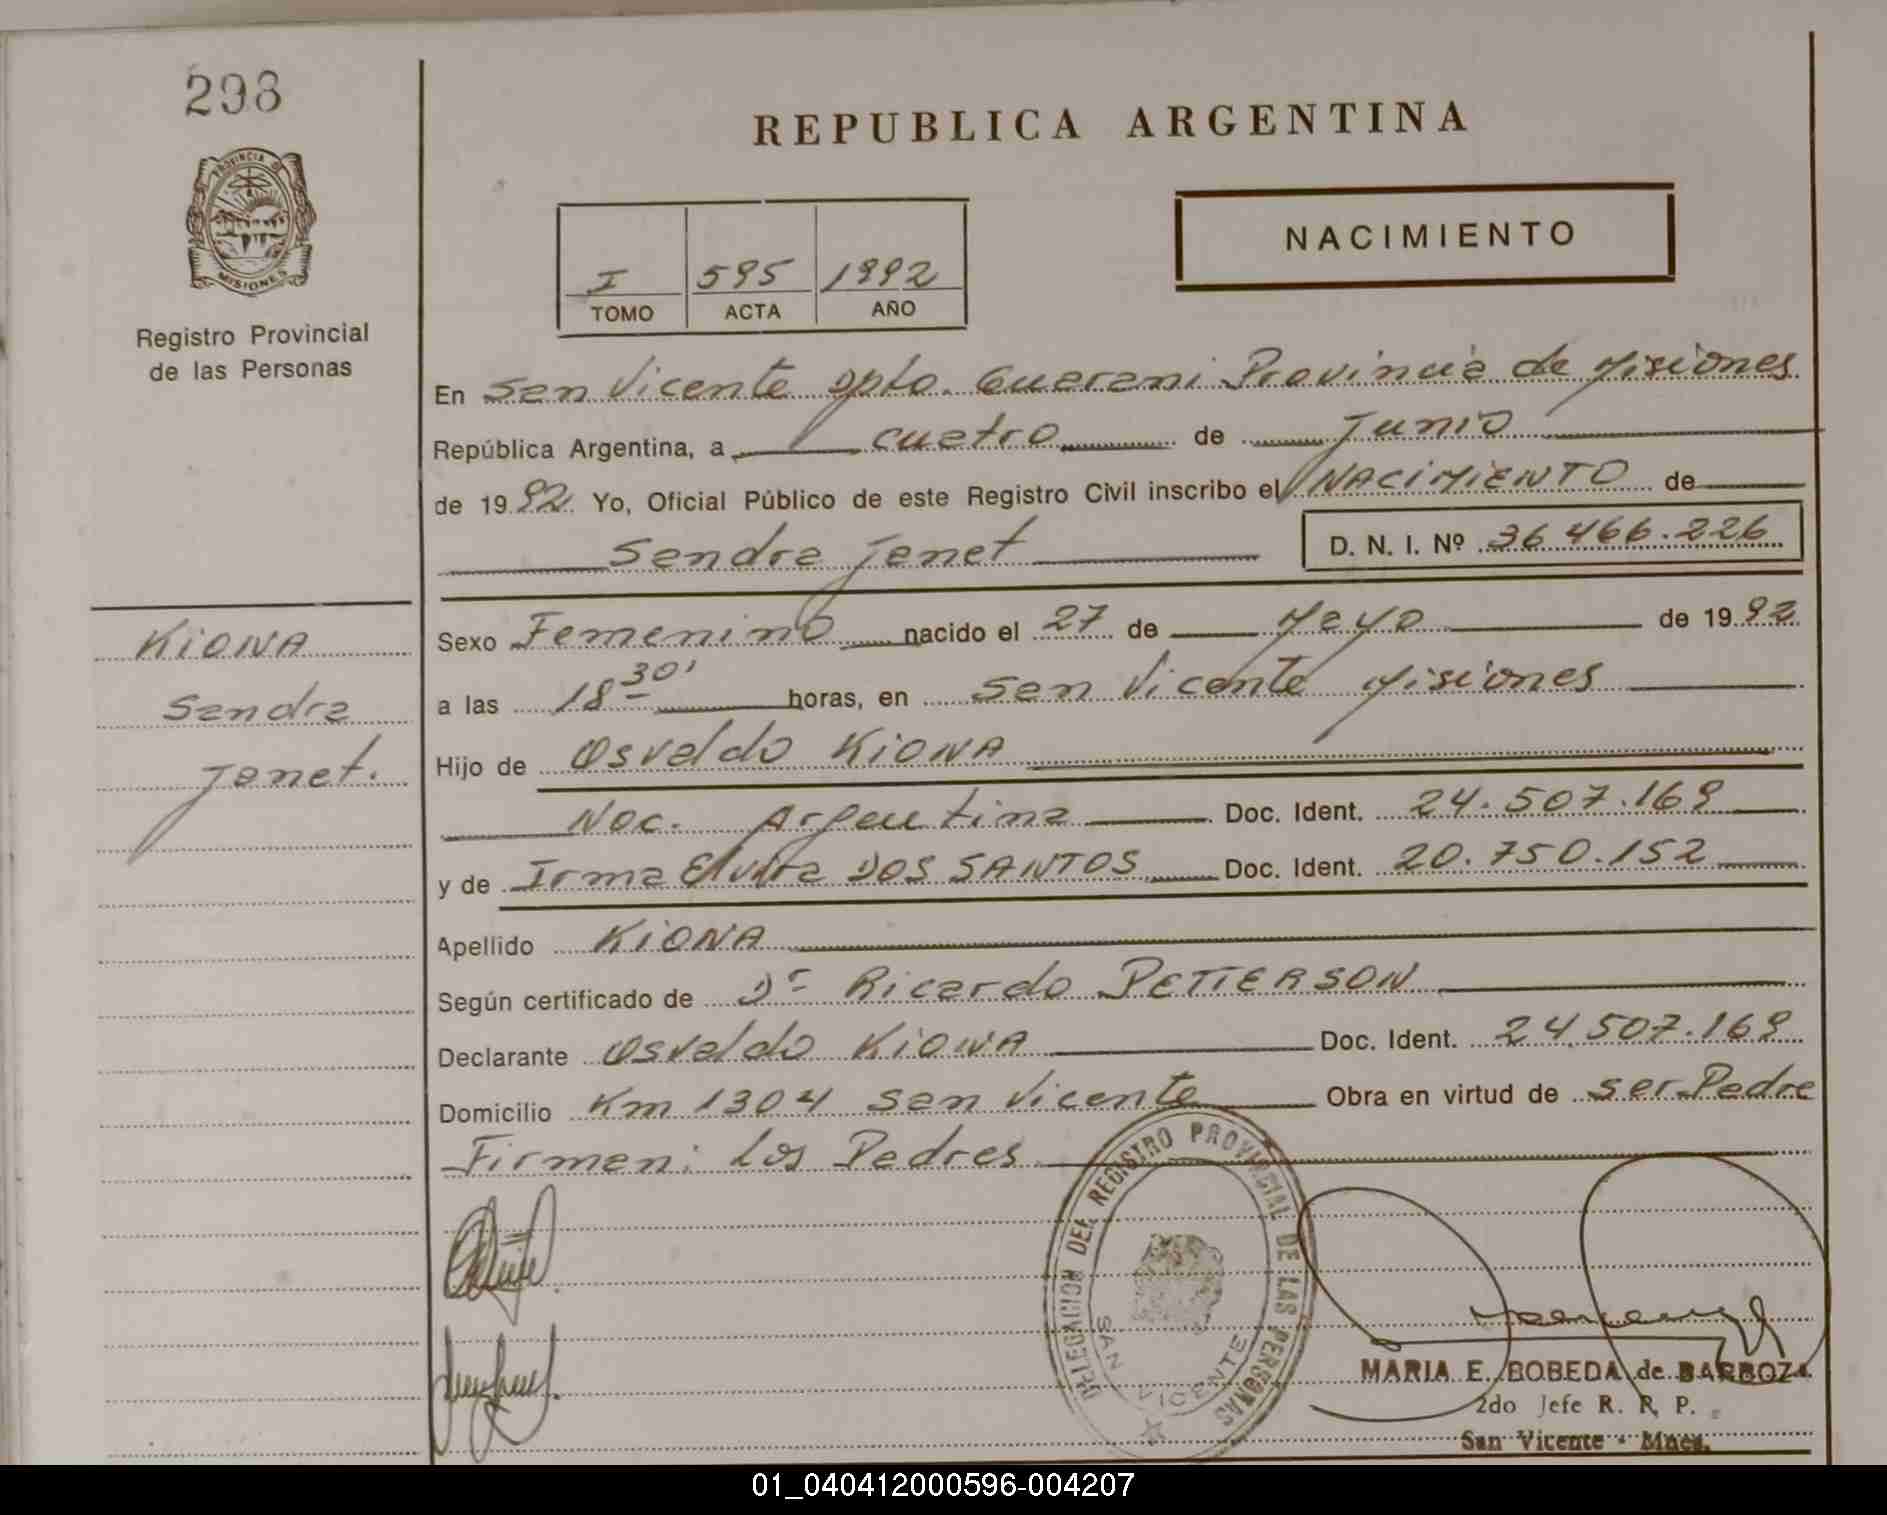 298
PROVINCIA DE
MISIONES
Registro Provincial
de las Personas
REPUBLICA ARGENTINA
NACIMIENTO
I 595 1992
TOMO ACTA AÑO
En San Vicente Dpto. Guarani Provincia de Misiones
República Argentina, a cuatro de Junio
de 1992. Yo, Oficial Público de este Registro Civil inscribo el NACIMIENTO de
Sandra Janet D. N. I. Nº 36 466.226
KiONA
Sandra
Janet.
Sexo Femenino nacido el 27 de Mayo de 1992.
a las 18 30' horas, en San Vicente Misiones
Hijo de Osvaldo KiONA
Nac. Argentina Doc. Ident. 24.507.169
y de Irma Elvira DOS SANTOS Doc. Ident. 20.750.152
Apellido KiONA
Según certificado de Dr Ricardo PETTERSON
Declarante Osvaldo KiONA Doc. Ident. 24.507.169
Domicilio Km 1304 San Vicente Obra en virtud de ser Padre
Firman: Los Padres
DELEGACION DEL REGISTRO PROVINCIAL DE LAS PERSONAS
SAN VICENTE
MARIA E. BOBEDA de BARBOZA
2do Jefe R. R. P.
San Vicente - Mnes.
01_040412000596-004207